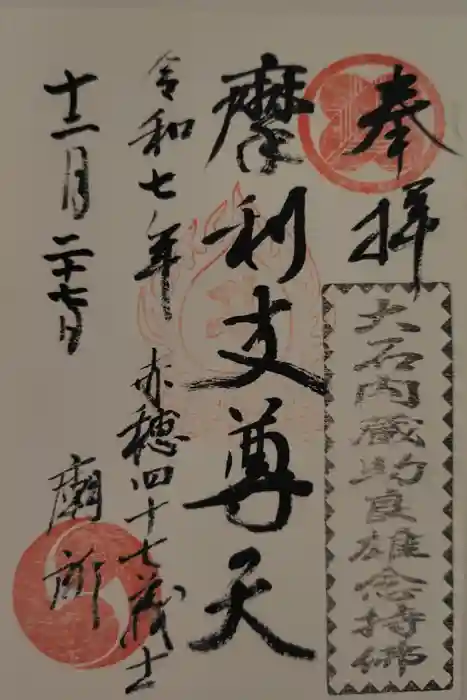 奉拝
大石内蔵助良雄念持佛
摩利支尊天
令和七年
赤穂四十七義士
十二月二十七日
廟所